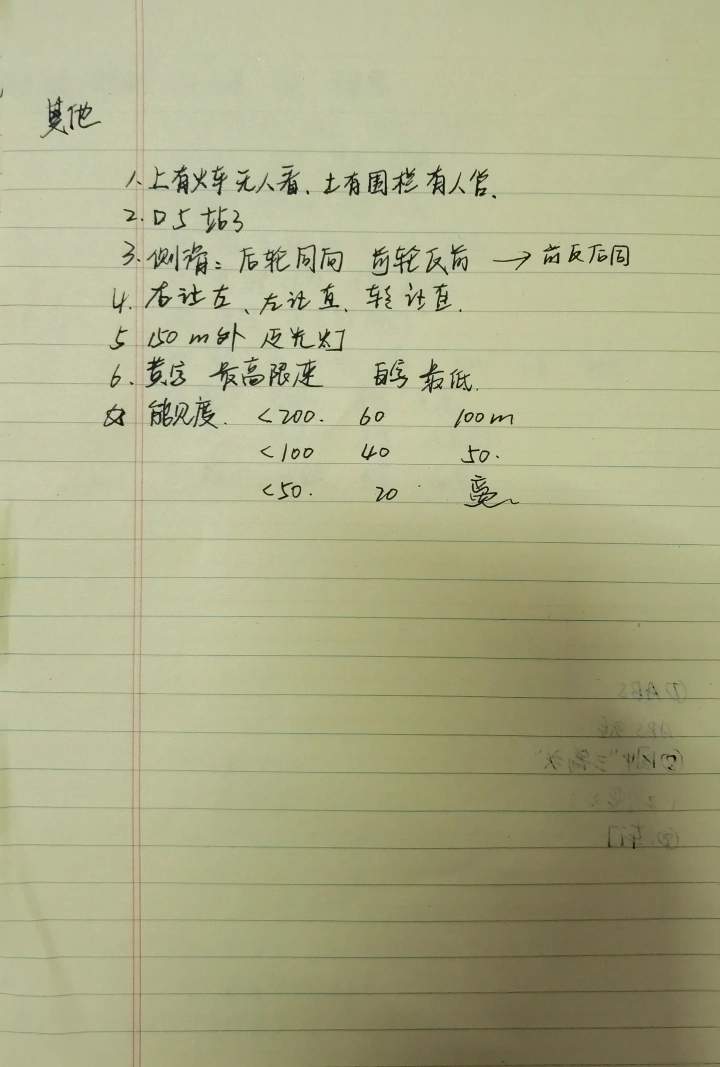 其他
1. 上有火车无人看、上有围栏有人管、
2. 口5站3
3. 侧滑：后轮同向 前轮反前 → 前反后同
4. 右让左、左让直、转让直.
5 150m外 远光灯
6. 黄字 最高限速 白字 最低.
☆ 能见度. <200. 60 100m
<100 40 50.
<50. 20
① ABS
ABS
② "三角"
③ 车门